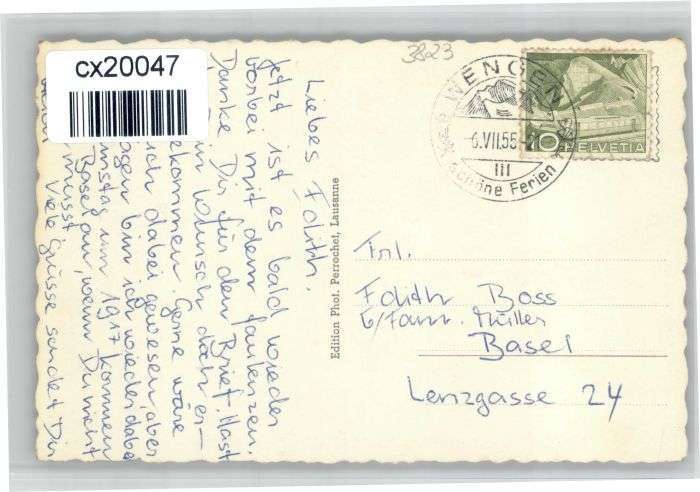 cx20047
3823
WENGEN
6.VII.55
III
schöne Ferien
10
HELVETIA
Liebes Edith.
Jetzt ist es bald wieder
vorbei mit dem faulenzen.
Danke Dir für den Brief. Hast
Wunsch doch er-
bekommen. Gerne wäre
ich dabei gewesen, aber
bin ich wieder dabei
um 1917 kommen
Basel an, wenn Du nicht
musst
Viele Grüsse sendet Dir
Edition Phot. Perrochet, Lausanne
Frl.
Edith Boss
b/Fam. Müller
Basel
Lenzgasse 24